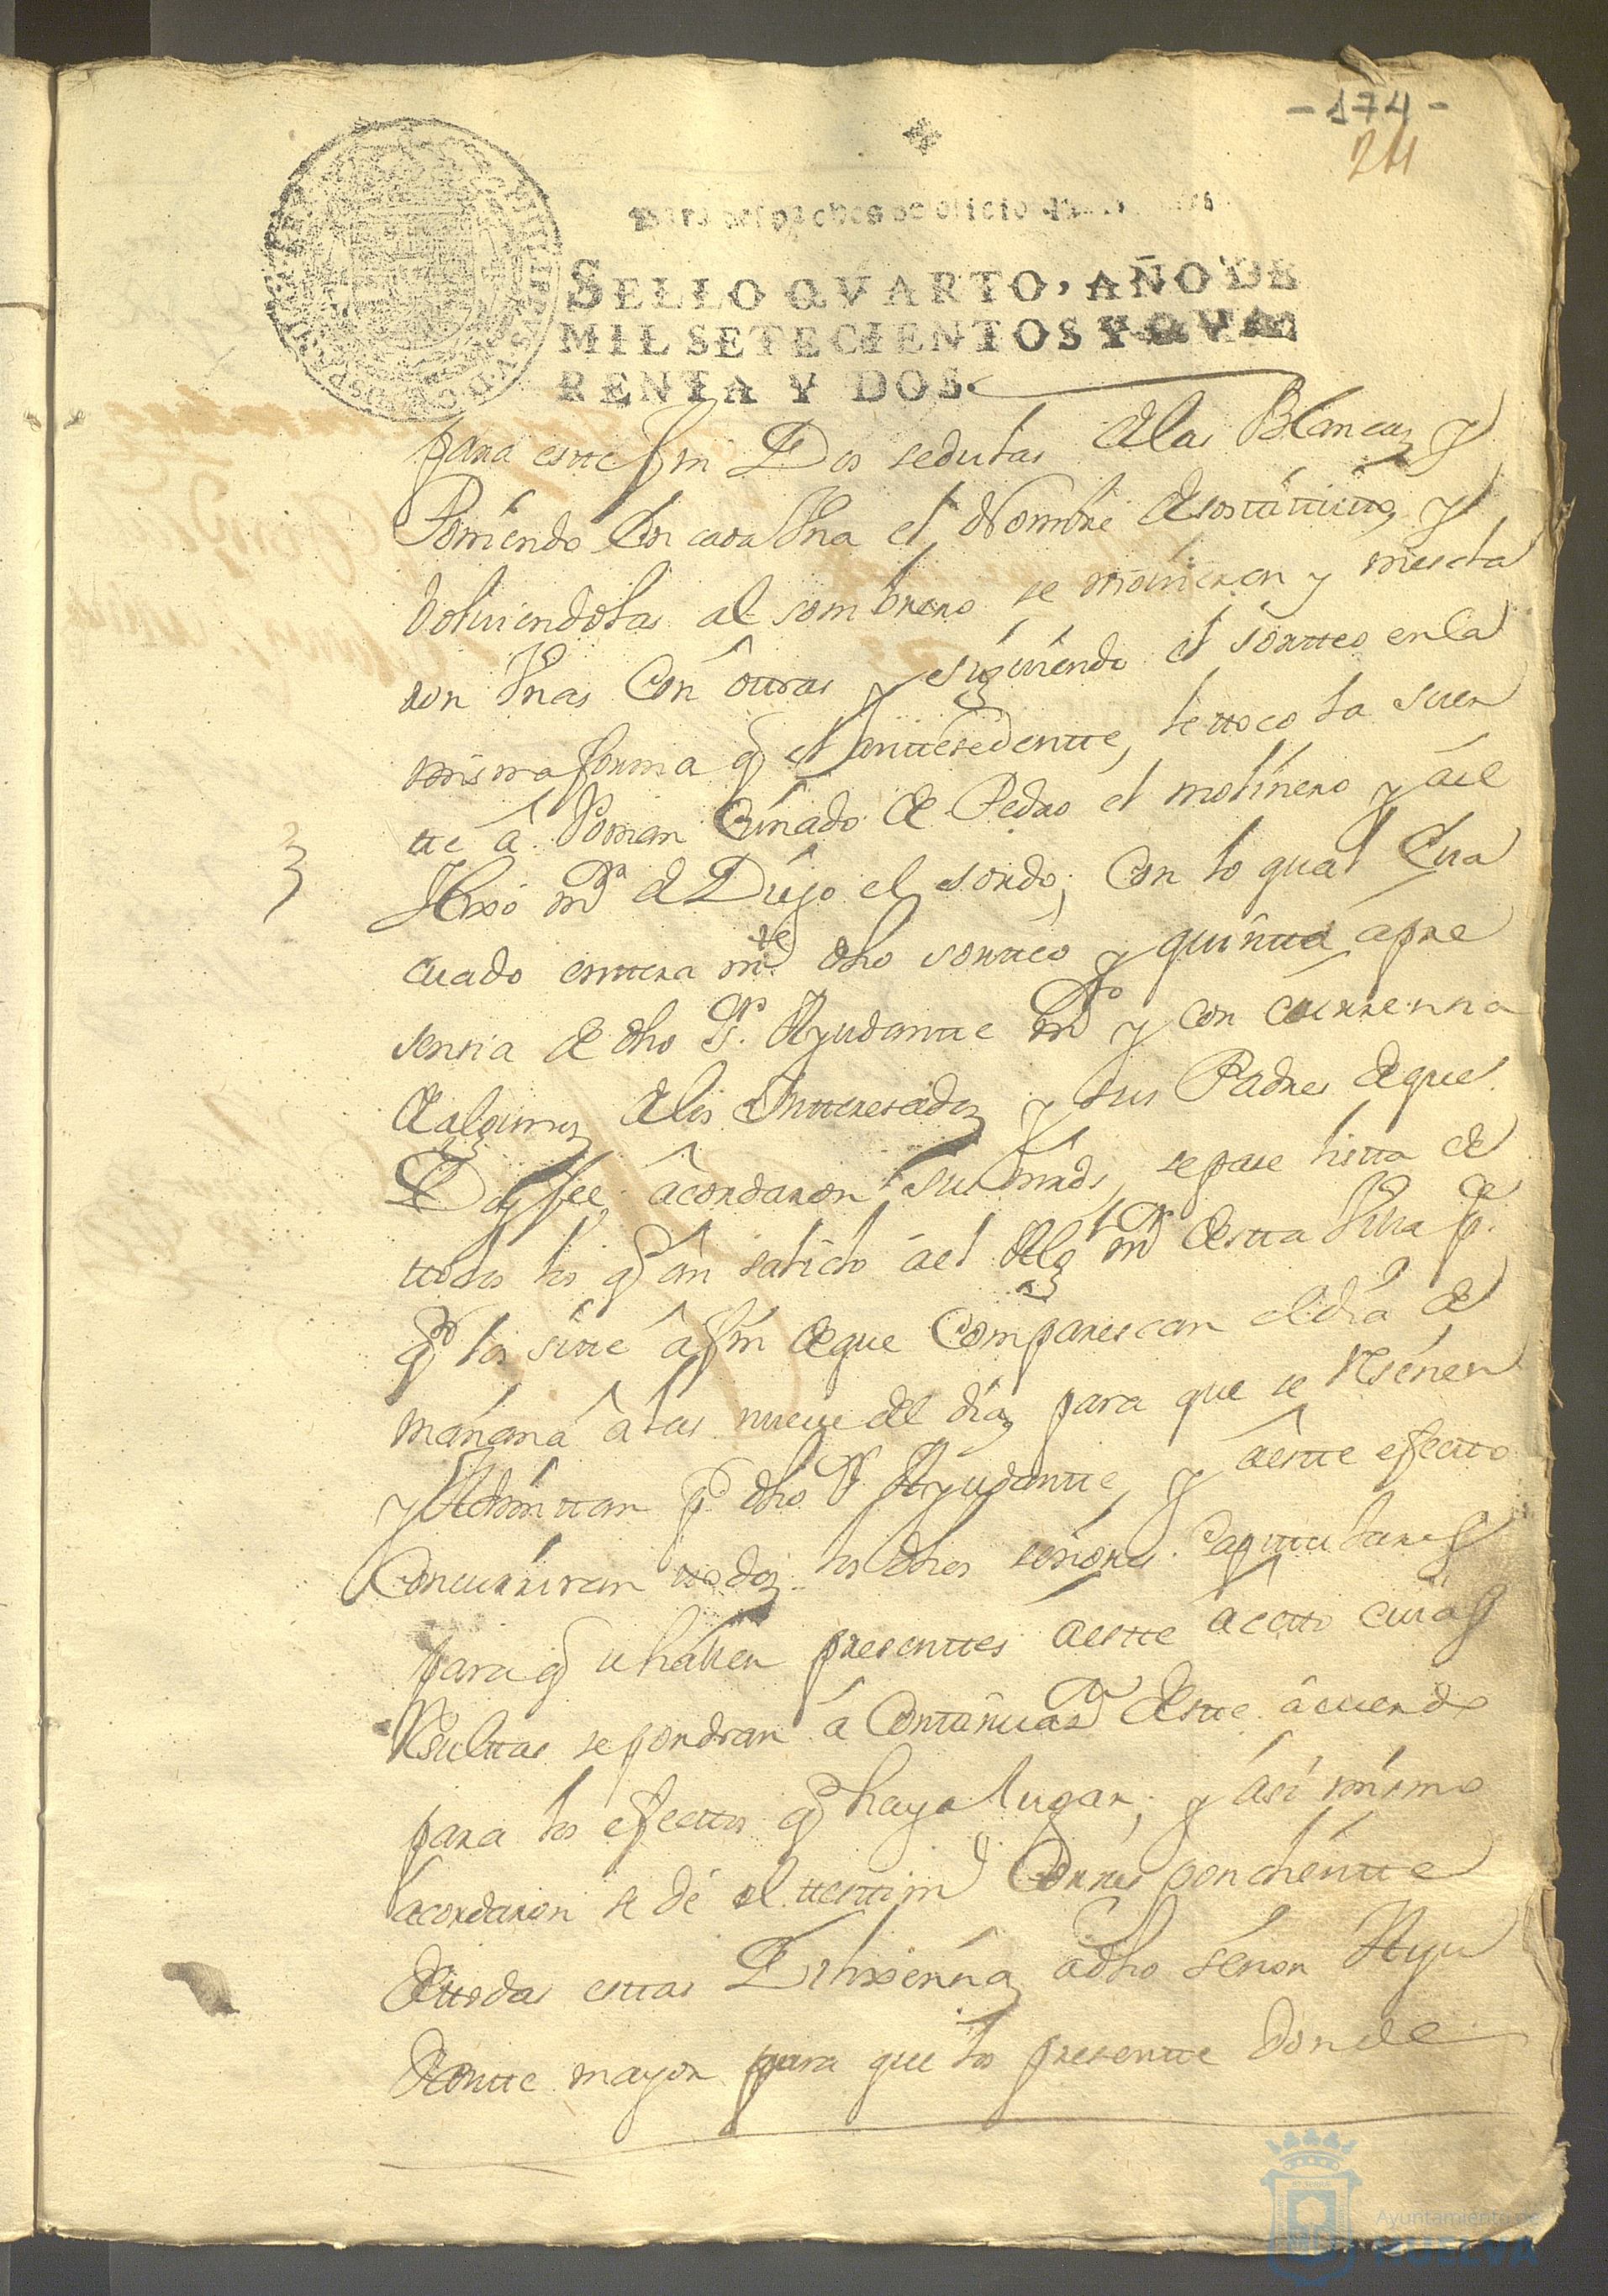 - 174 -
24
Para despachos de oficio
SELLO QVARTO, AÑO DE
MIL SETECIENTOS Y QVA
RENTA Y DOS.
para estte fin Dos sedulas de las Blancas y
Poniendo En cada Vna el Nombre
volviendolas al sombrero, se mouieron y mescla
ron Vnas Con ôttras y siguiendo el sortteo en la
misma forma q el anttesedentte, le ttoco la suer
tte â Roman Criado de Pedro el molinero y âel
Hixo mr de Diego el sordo; Con lo qual Eva
cuado enttera mte dho sortteo y quintta âpre
sensia de dho Sr. Ayudantte mr y con currensia
de algunos de los Ynteresados y sus Padres de que
Doy fee, âcordaron sus mrds, se pase lista de
ttodos los q an salido âel Alg mr de estta Villa pa.
q los sitte â fin de que Comparescan el dia de
mañana â las nueue del dia para que se Reseñen
y Admitan pr dho Sr Ayudantte, y âestte efectto
Concurriran ttodos los dhos señores Capitulares
para q se hallen presenttes âestte âctto cuias
Resulttas se pondran â Continuazn de estte âcuerdo
para los efecttos q haya lugar; y âsi mismo
âcordaron se dé el ttesttimo Correspondientte
de ttodas esttas Dilixensias a dho señor Ayu
dantte mayor para que los presentte donde
3
Ayuntamiento de
HUELVA